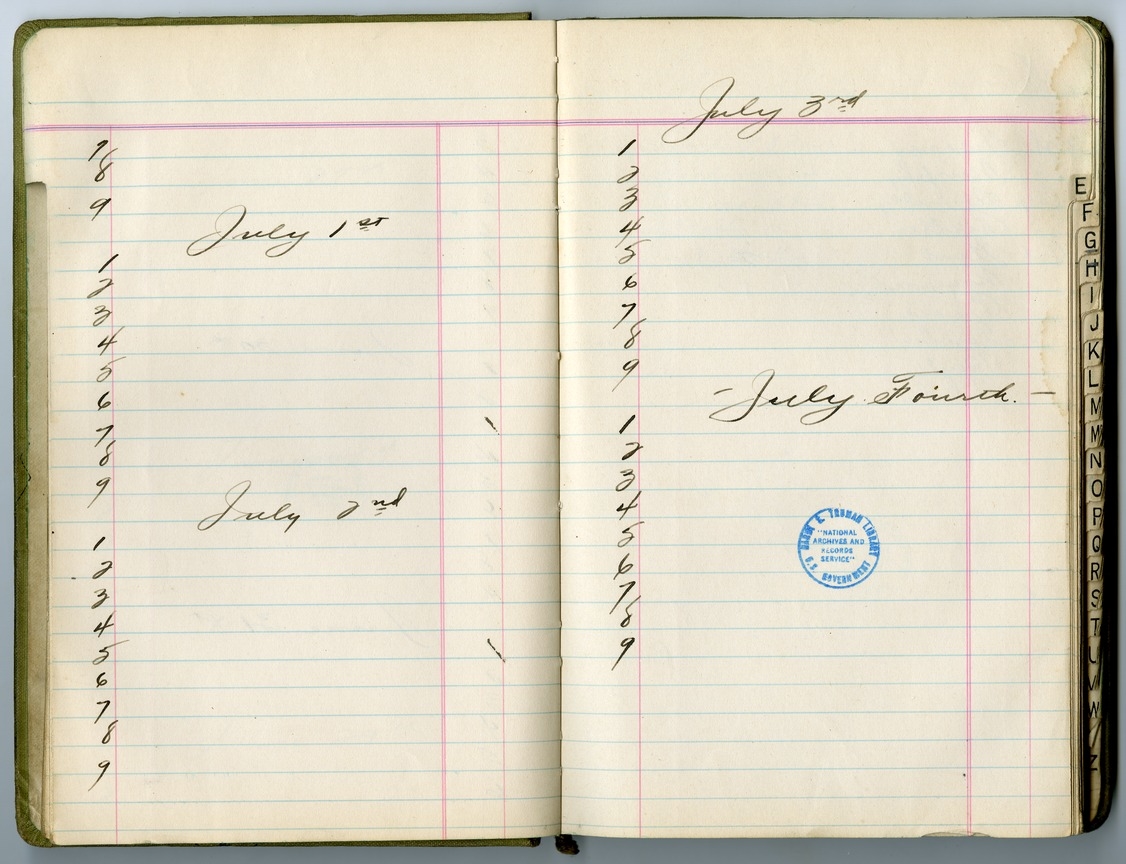 7
8
9
July 1st
1
2
3
4
5
6
7
8
9
July 2nd
1
2
3
4
5
6
7
8
9
July 3rd
1
2
3
4
5
6
7
8
9
- July Fourth. -
1
2
3
4
5
6
7
8
9
HARRY S. TRUMAN LIBRARY
"NATIONAL
ARCHIVES AND
RECORDS
SERVICE"
U.S. GOVERNMENT
E
F
G
H
I
J
K
L
M
M
N
O
P
Q
R
S
T
U
V
W
Z